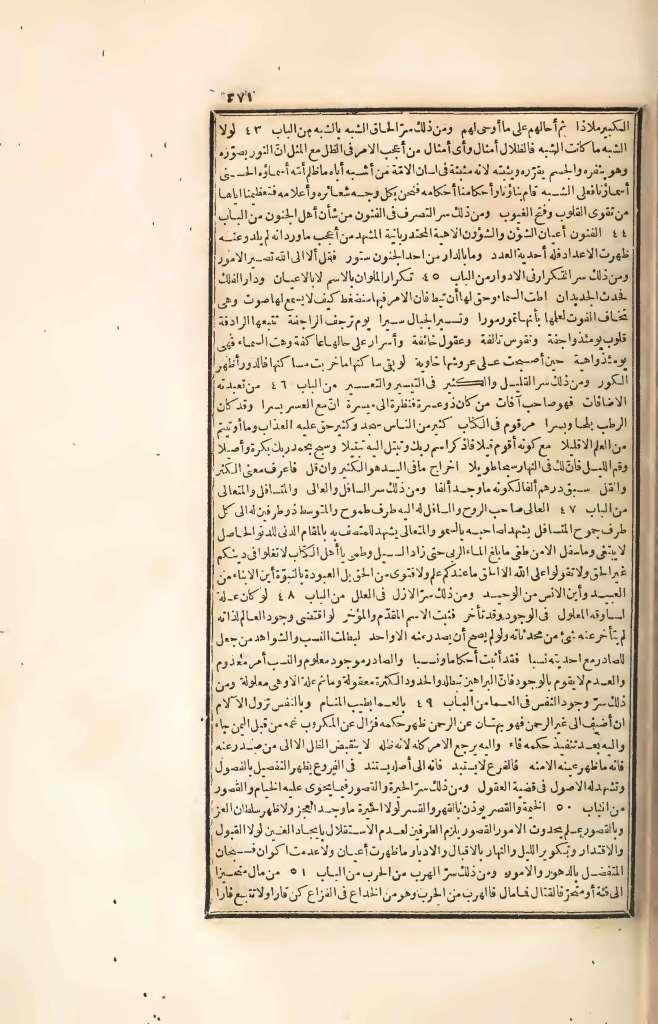 ٤٧١
المكبير ملاذا ثم أحالهم على ما أوحى لهم ومن ذلك سر الحاق الشبه بالشبه من الباب ٤٣ لولا
الشبه ما كانت الشبه فالظلال أمثال وأى أمثال من أعجب الامر فى الظل مع المثل ان النور يصوّره
وهو ينفره والجسم يقرّره ويثبته لانه منبئة فى لسان الامة من أشبه أباه ما ظلم أمّه أسماؤه الحسنى
أسماؤنا فعلى الشبه قام بناؤنا وأحكامنا أحكامه فنحن بكل وجه شعائره وأعلامه فتعظيمنا اياها
من تقوى القلوب وفتح الغيوب ومن ذلك سر التصرف فى الفنون من شأن أهل الجنون من الباب
٤٤ الفنون أعيان الشؤن والشؤون الالهية المخندر بانية المشهد من أعجب ما ورد انه لم يلد وعنه
ظهرت الاعداد فله أحدية العدد وما بالدار من احد الجنون ستور فقل ألا الى الله تصير الامور
ومن ذلك سر التكرار فى الادوار من الباب ٤٥ تكرار الملوان بالاسم لا بالاعيان ودار الفلك
فحدث الجديدان اطت السماء وحق لها أن تئط فان الامر فيها منضغط كيف لا يسمع لها صوت وهى
تخاف الفوت لعلمها بأنها تمور مورا وتسير الجبال سيرا يوم ترجف الراجفة تتبعها الرادفة
قلوب يومئذ واجفة ونفوس تالفة وعقول خائفة وأسرار على حالها عاكفة وهت السماء فهى
يومئذ واهية حين أصبحت على عروشها خاوية لو بقى ساكنها ما خربت مساكنها فالدور أظهر
الكور ومن ذلك سر القليل والكثير فى التيسير والتعسير من الباب ٤٦ من تعبدته
الاضافات فهو صاحب آفات من كان ذو عسرة فنظرة الى ميسرة ان مع العسر يسرا وقد كان
الرطب بلحا وبسرا مرقوم فى الكتاب كثير من الناس سجد وكثير حق عليه العذاب وما أوتيتم
من العلم الا قليلا مع كونه أقوم قيلا فاذكر اسم ربك وتبتل اليه تبتيلا وسبح بحمد ربك بكرة وأصيلا
وقم الليل فانّ لك فى النهار سبحا طويلا اخراج ما فى اليد هو الكثير وان قل فاعرف معنى الكثر
والقل سبق درهم ألفا لكونه ما وجد ألفا ومن ذلك سر السافل والعالى والمتسافل والمتعالى
من الباب ٤٧ العالى صاحب الروح والسافل له اليه طرف طموح والمتوسط ذو طرفين له الى كل
طرف جموح المتسافل يشهد لصاحبه بالسمو والمتعالى يشهد للمتصف به بالمقام الدنى للدنو الحاصل
لا ينبغى وما سفل الا من طغى ما بلغ الماء الربى حتى زاد السيل وطمى يا أهل الكتاب لا تغلوا فى دينكم
غير الحق ولا تقولوا على الله الا الحق ما عندكم علم ولا فتوى من الحق بلى العبودة بالنبوّة أين الابناء من
العبيد وأين الانس من الوحيد ومن ذلك سر الازل فى العلل من الباب ٤٨ لو كان علة
لساوقه المعلول فى الوجود وقد تأخر فثبت الاسم المقدّم والمؤخر لو اقتضى وجود العالم لذاته
لم يتأخر عنه شئ من محدثاته ولو لم يصح أن يصدر عنه الا واحد لبطلت النسب والشواهد من جعل
للصادر مع احديته نسبا فقد أثبت أحكاما ونسبا والصادر موجود معلوم والنسب أمر معدوم
والعدم لا يقوم بالوجود فانّ البراهين تبطله والحدود الكثرة معقولة وما ثم علة الا وهى معلولة ومن
ذلك سر وجود النفس فى العسا من الباب ٤٩ بالعما يطيب المنام وبالنفس تزول الآلام
ان أضيف الى غير الرحمن فهو بهتان عن الرحمن ظهر حكمه فزال عن المكروب غمه من قبل اليمن جاء
واليه بعد تنفيذ حكمه فاء واليه يرجع الامر كله لانه ظله لا ينقبض الظل الا الى من صدر عنه
فانه ما ظهر عينه الا منه فالفرع لا يستبد فانه الى أصله يستند فى الفروع يظهر التفصيل بالفصول
وتشهد له الاصول فى قضية العقول ومن ذلك سر الحيرة والقصور فيما يحوى عليه الخيام والقصور
من الباب ٥٠ الخيمة والقصر يوذن بالقهر والقسر لولا الحيرة ما وجد العجز ولا ظهر سلطان العز
وبالقصور علم بحدوث الامور القصور يلزم الطرفين لعدم الاستقلال بايجاد العين لولا القبول
والاقتدار وتكوير الليل والنهار بالاقبال والادبار ما ظهرت أعيان ولا عدمت اكوان فسبحان
المتفضل بالدهور والامور ومن ذلك سر الهرب من الحرب من الباب ٥١ من مال متحيزا
الى فئة أو متحرّ فالقتال فما مال فالهرب من الحرب وهو من الخداع فى القزاع كن قارا ولا تتبع فارا